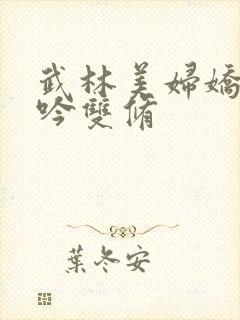 武林美婦嬌
吟雙脩
葉冬安